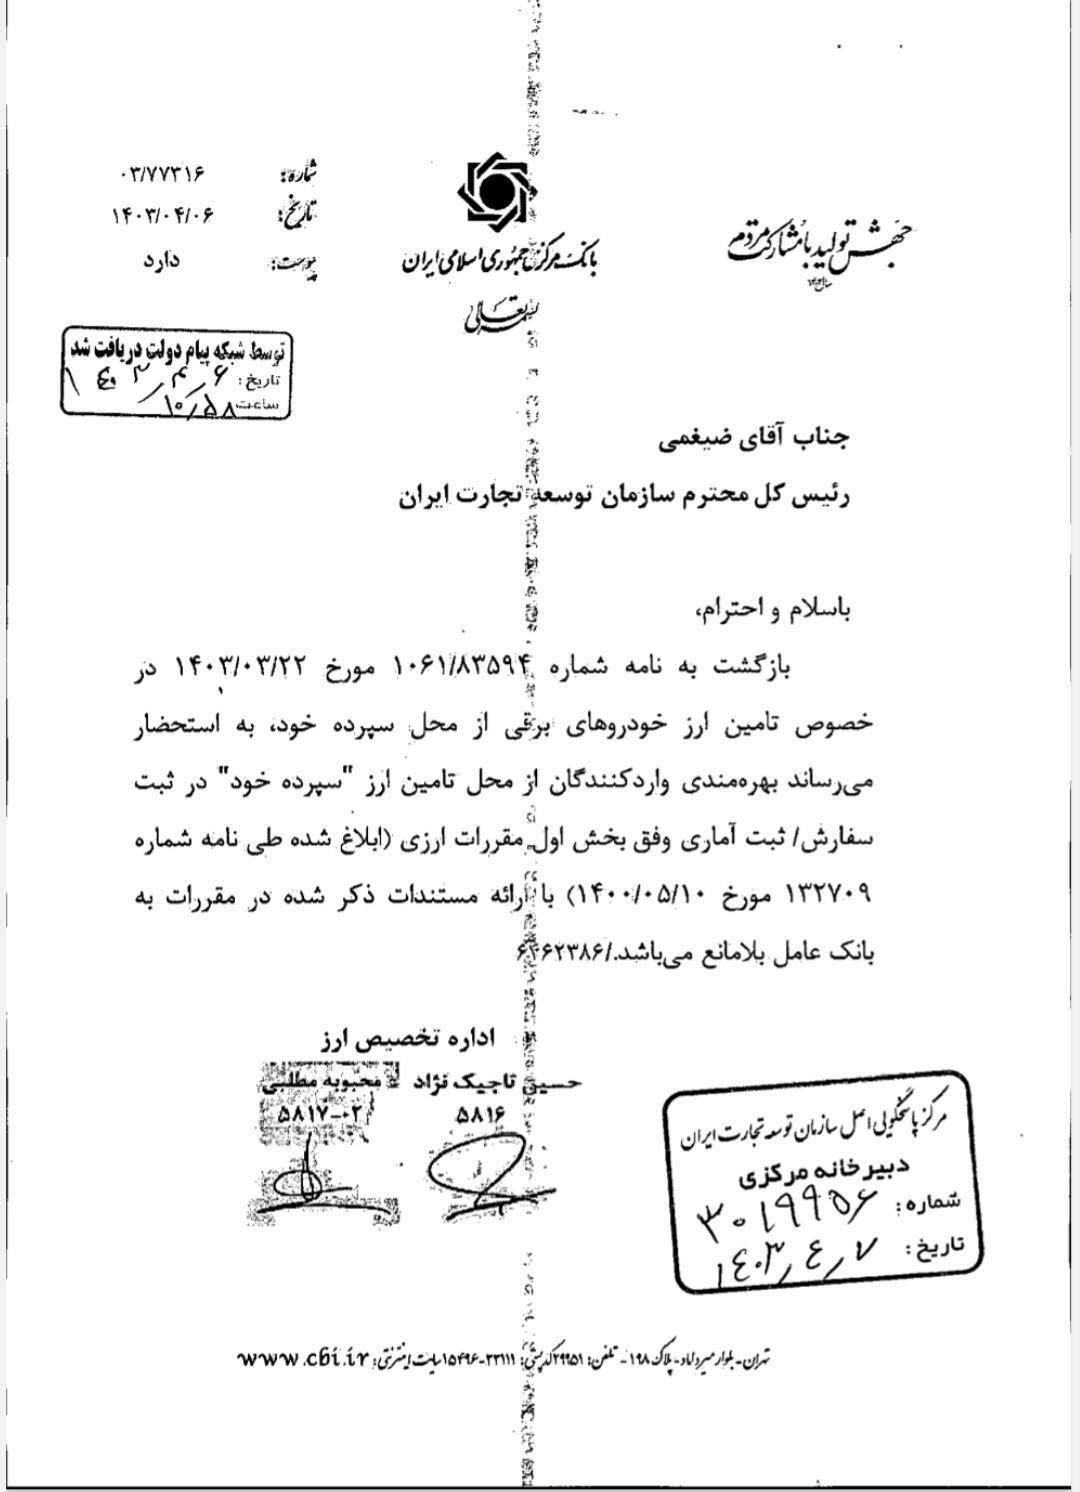 جهش تولید با مشارکت مردم
بانک مرکزی جمهوری اسلامی ایران
بسمه تعالی
شماره: ۰۳/۷۷۳۱۶
تاریخ: ۱۴۰۳/۰۴/۰۶
پیوست: دارد
توسط شبکه پیام دولت دریافت شد
تاریخ: ۱۴۰۳/۴/۶
ساعت ۱۰/۵۸
جناب آقای ضیغمی
رئیس کل محترم سازمان توسعه تجارت ایران
باسلام و احترام،
بازگشت به نامه شماره ۱۰۶۱/۸۳۵۹۴ مورخ ۱۴۰۳/۰۳/۲۲ در
خصوص تامین ارز خودروهای برقی از محل سپرده خود، به استحضار
می‌رساند بهره‌مندی واردکنندگان از محل تامین ارز "سپرده خود" در ثبت
سفارش/ ثبت آماری وفق بخش اول مقررات ارزی (ابلاغ شده طی نامه شماره
۱۳۲۷۰۹ مورخ ۱۴۰۰/۰۵/۱۰) با ارائه مستندات ذکر شده در مقررات به
بانک عامل بلامانع می‌باشد./
اداره تخصیص ارز
حسین تاجیک نژاد محبوبه مطلبی
۵۸۱۶ ۵۸۱۷-۰۲
مرکز پاسخگویی اصل سازمان توسعه تجارت ایران
دبیرخانه مرکزی
شماره: ۳۰۱۹۹۵۶
تاریخ: ۱۴۰۳/۴/۷
تهران- بلوار میرداماد- پلاک ۱۹۸- تلفن: ۲۹۹۵۱ کدپستی: ۳۳۱۱۱-۱۵۴۹۶ سایت اینترنتی: www.cbi.ir